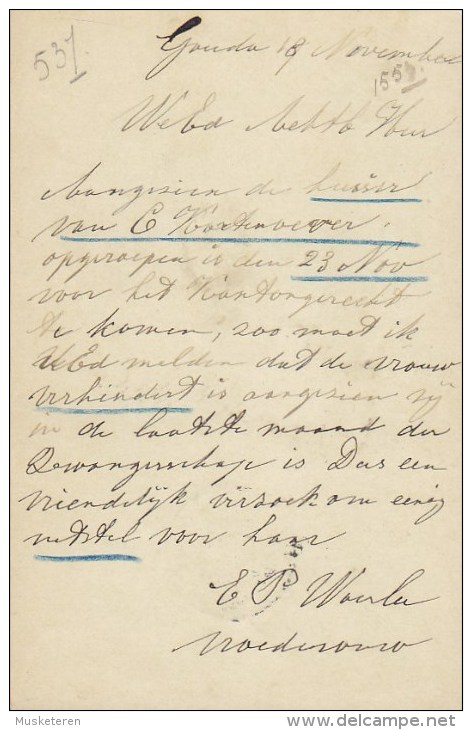 537.
Gouda 18 November
WelEd Achtb Heer
Aangezien de huisvr
van C Kortenoever.
opgeroepen is den 23 Nov
voor het Kantongerecht
te komen, zoo moet ik
UEd melden dat de vrouw
verhindert is aangezien zij
in de laatste maand der
Zwangerschap is Dus een
vriendelijk verzoek om eenig
uitstel voor haar
E P
Vroedvrouw
Musketeren
www.delcampe.net